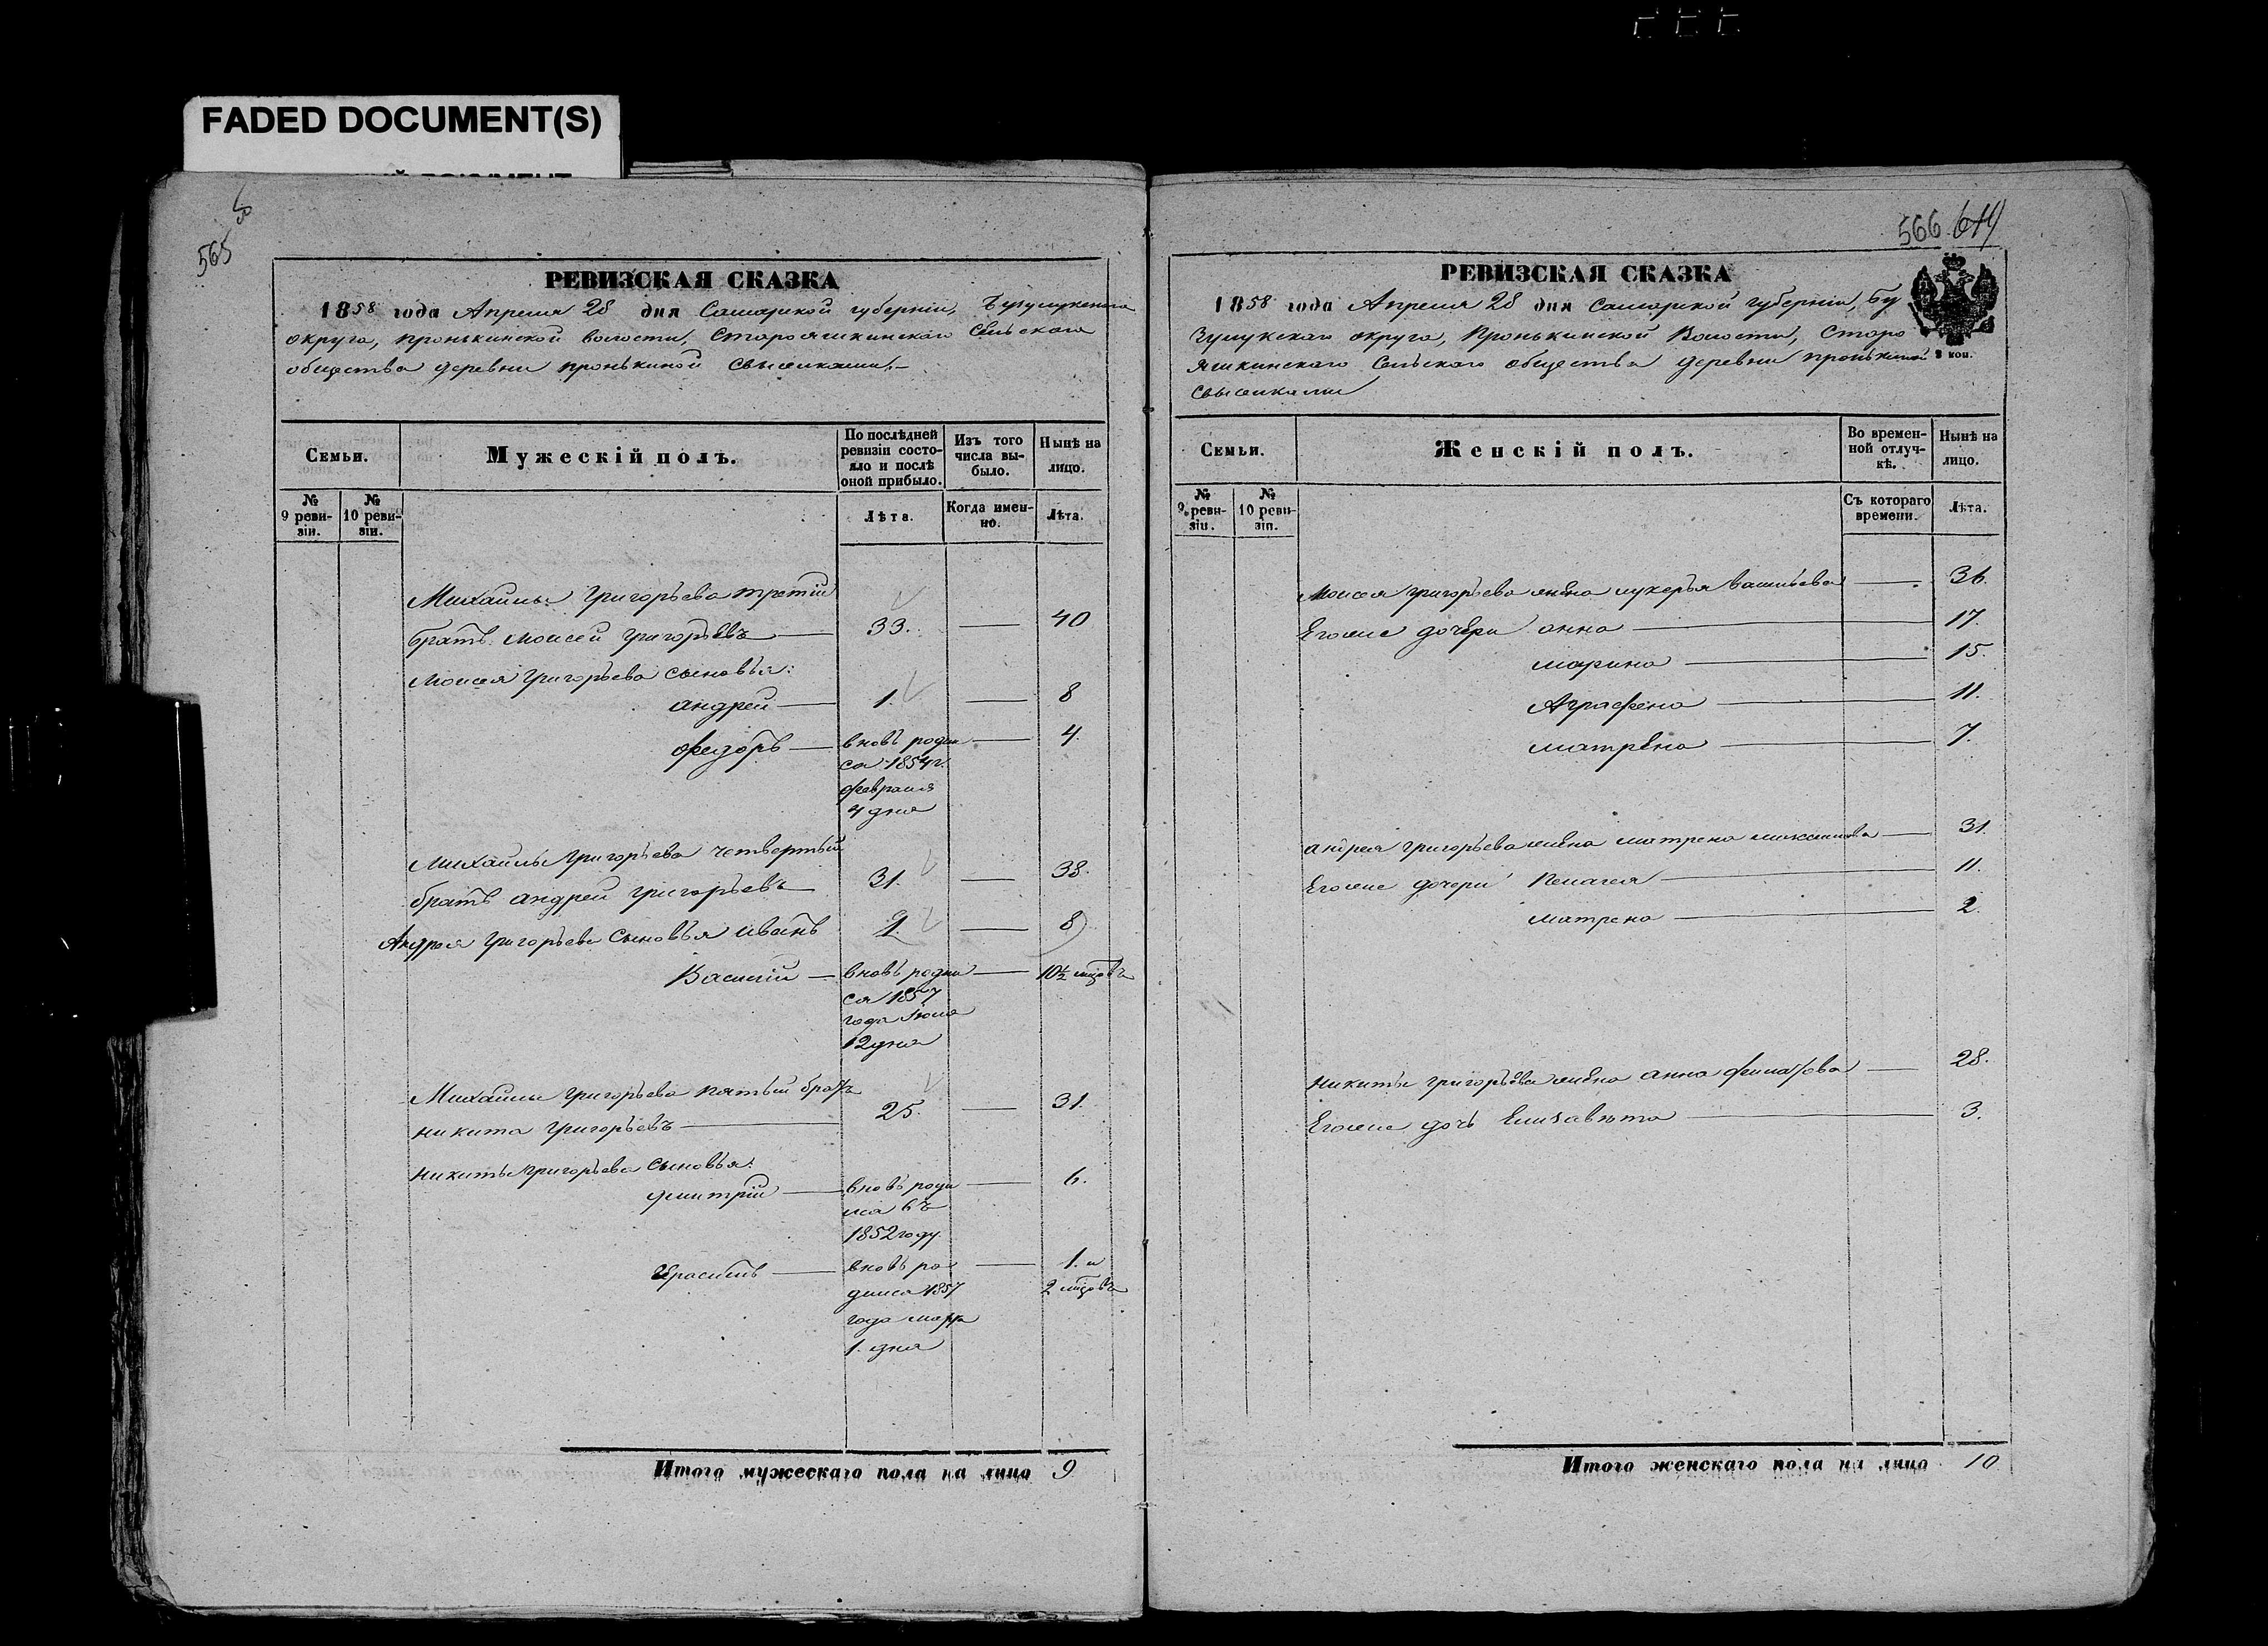 FADED DOCUMENT(S)
565
РЕВИЗСКАЯ СКАЗКА
1858 года Апреля 28 дня Самарской губерніи, Бузулукскаго
округа, Пронькинской волости, Старояшкинскаго Сельскаго
общества деревни Пронькиной
Семьи.
Мужескій полъ.
По послѣдней ревизіи состояло и послѣ оной прибыло.
Изъ того числа выбыло.
Нынѣ на лицо.
№ 9 ревизіи.
№ 10 ревизіи.
Лѣта.
Когда именно.
Лѣта.
Михайлы Григорьева третій
братъ Моисей Григорьевъ 33. 40
Моисея Григорьева сыновья:
Андрей 1. 8
Федоръ вновь родил 4.
ся 1854 г.
февраля
4 дня
Михайлы Григорьева четвертый
братъ Андрей Григорьевъ 31. 38.
Андрея Григорьева сыновья Иванъ 8
Василій вновь родил 10½ мцовъ
ся 1857
года Июня
12 дня
Михайлы Григорьева пятый братъ
Никита Григорьевъ 25. 31.
Никиты Григорьева сыновья:
Дмитрій вновь роди 6.
лся въ
1852 году.
Герасимъ вновь ро 1. и
дился 1857 2 мцовъ
года марта
1. дня
Итого мужескаго пола на лицо 9
566
РЕВИЗСКАЯ СКАЗКА
1858 года Апреля 28 дня Самарской губерніи, Бу
зулукскаго округа, Пронькинской Волости, Старо
яшкинскаго Сельскаго общества деревни Пронькиной
3 коп.
Семьи.
Женскій полъ.
Во временной отлучкѣ.
Нынѣ на лицо.
№ 9 ревизіи.
№ 10 ревизіи.
Съ котораго времени.
Лѣта.
Моисея Григорьева жена Лукерья Васильева 36.
Его же дочери Анна 17.
Марина 15.
Аграфена 11.
Матрена 7.
Андрея Григорьева жена Матрена 31.
Его же дочери Пелагея 11.
Матрена 2.
Никиты Григорьева жена Анна Филатова 28.
Его же дочь Елизавета 3.
Итого женскаго пола на лицо 10